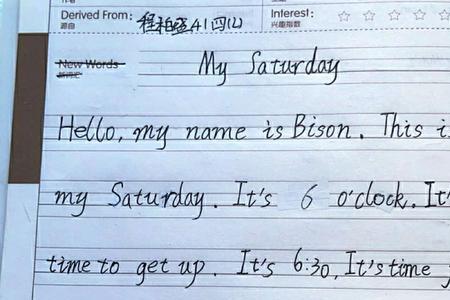 Derived From: 程柏盛41四(2)
源自
Interest: ☆ ☆ ☆ ☆ ☆
兴趣指数
New Words
My Saturday
Hello, my name is Bison. This i
my Saturday. It's 6 o'clock. It'
time to get up. It's 6:30, It's time